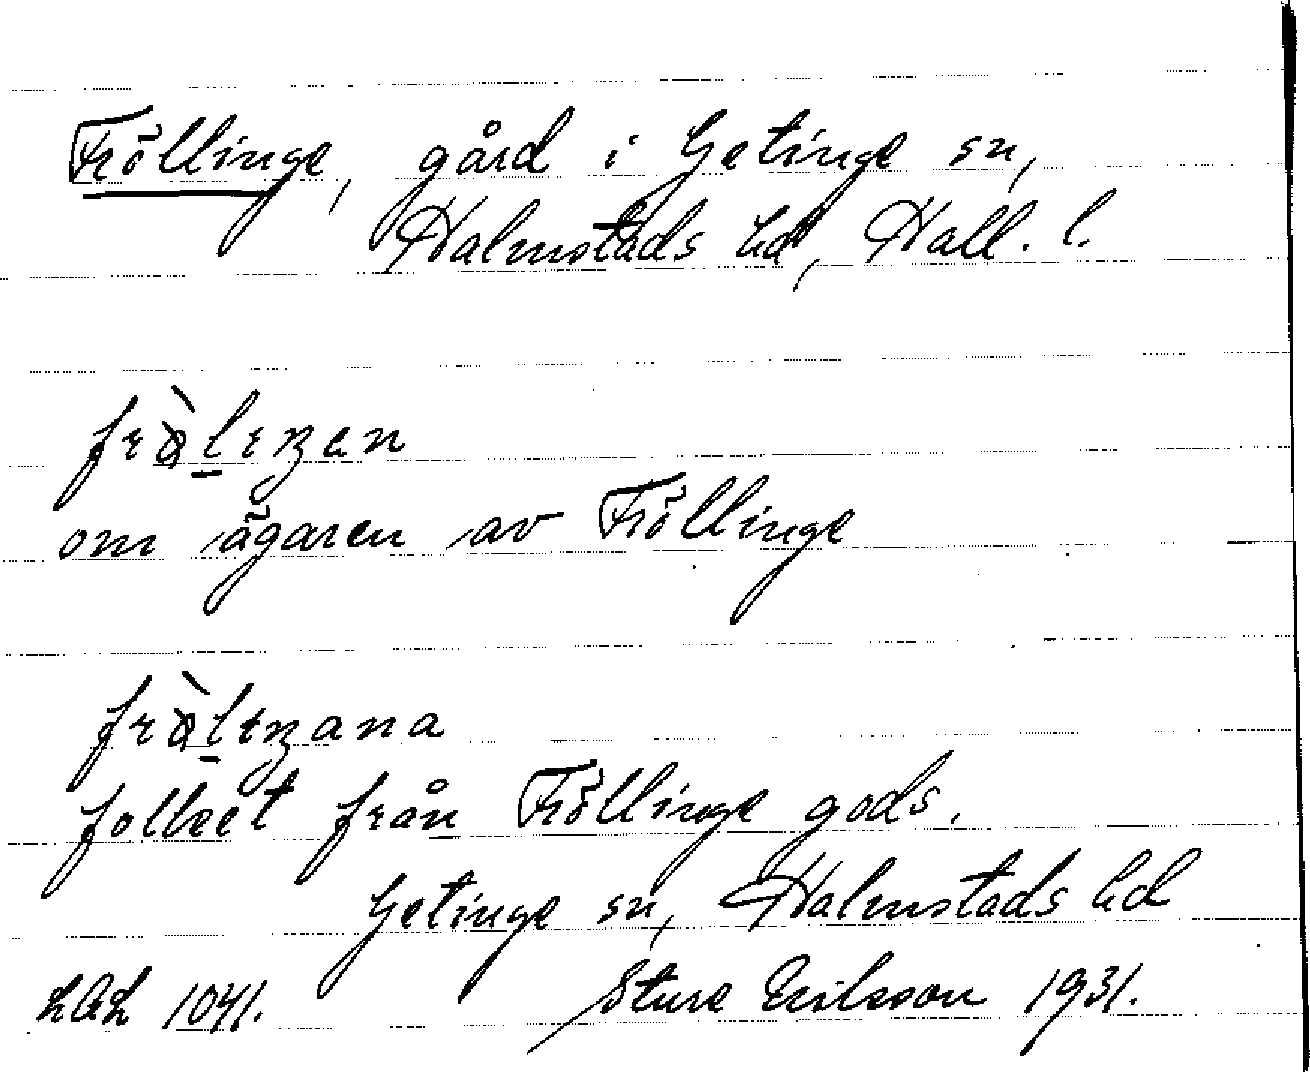 Fröllinge, gård i Getinge sn,
Halmstads hd, Hall. l.
om ägaren av Fröllinge
folket från Fröllinge gods.
Getinge sn, Halmstads hd
1041. Sture Erilsson 1931.